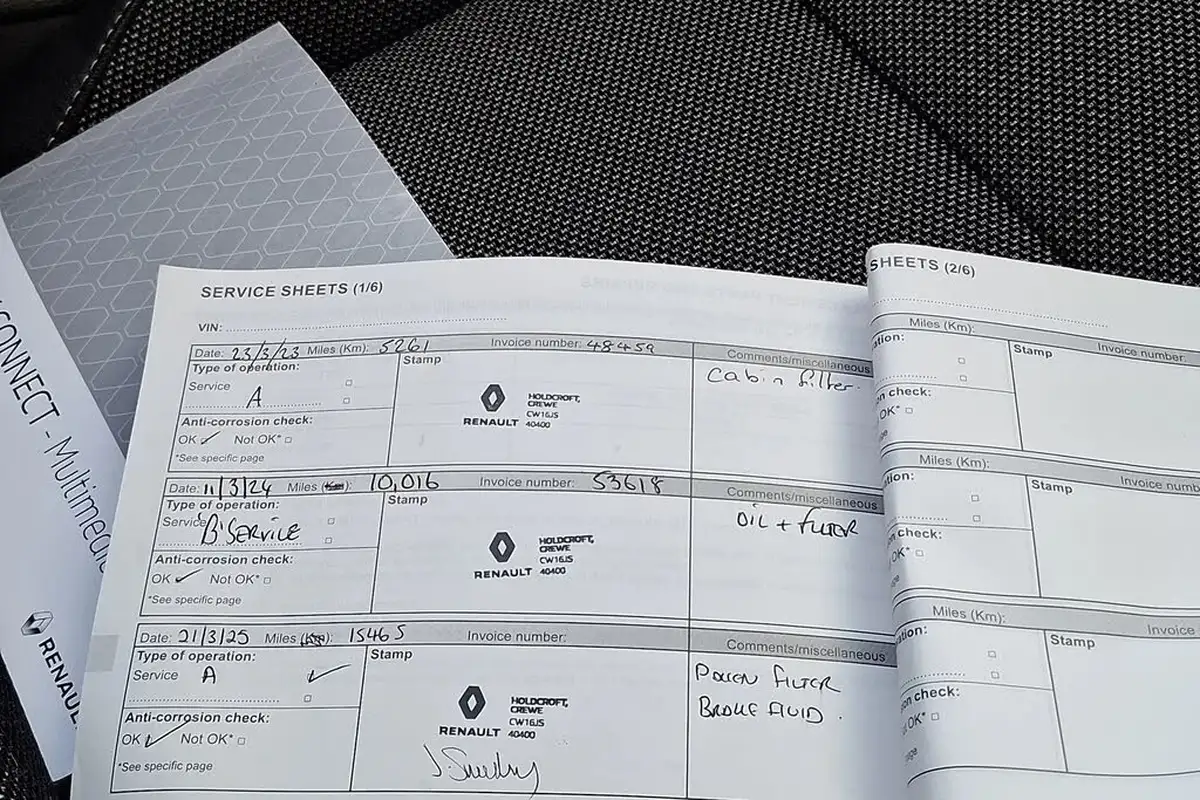 CONNECT - Multimedia
RENAULT
SERVICE SHEETS (1/6)
VIN:
Date: 23/3/23 Miles (Km): 5261 Invoice number: 48459 Comments/miscellaneous
Type of operation:
Stamp
Cabin filter.
Service
A
HOLDCROFT,
CREWE
CW16JS
RENAULT 40400
Anti-corrosion check:
OK ✓ Not OK*
*See specific page
Date: 11/3/24 Miles (Km): 10,016 Invoice number: 53618 Comments/miscellaneous
Type of operation:
Stamp
OIL + FILTER
Service 'B' SERVICE
HOLDCROFT,
CREWE
CW16JS
RENAULT 40400
Anti-corrosion check:
OK ✓ Not OK*
*See specific page
Date: 21/3/25 Miles (Km): 15465 Invoice number: Comments/miscellaneous
Type of operation:
Stamp
Service A ✓
POLLEN FILTER
BROKE FLUID.
HOLDCROFT,
CREWE
CW16JS
RENAULT 40400
Anti-corrosion check:
OK ✓ Not OK*
*See specific page
SHEETS (2/6)
Miles (Km): Invoice number:
ation:
Stamp
n check:
OK*
Miles (Km): Invoice numb
ation:
Stamp
check:
OK*
Miles (Km): Invoice
ation:
Stamp
on check:
OK*